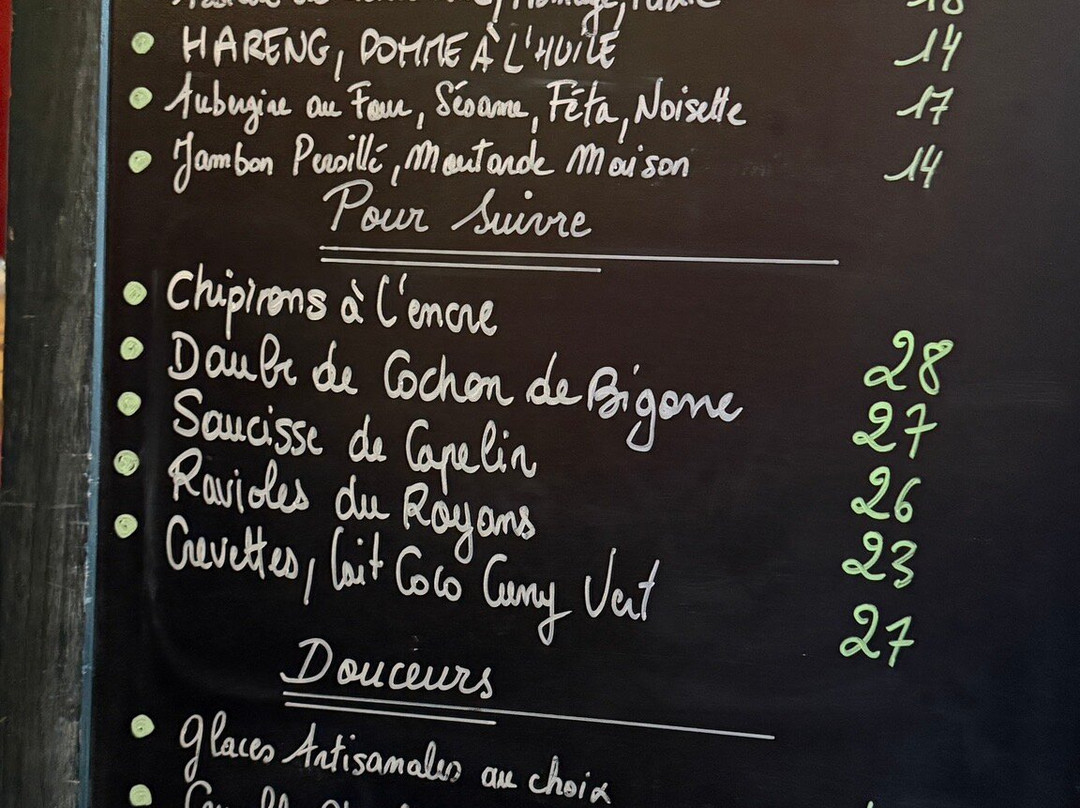 18
HARENG, POMME À L'HUILE 14
Aubergine au Four, Sésame, Féta, Noisette 17
Jambon Persillé, Moutarde Maison 14
Pour Suivre
Chipirons à l'encre 28
Daube de Cochon de Bigorre 27
Saucisse de Capelin 26
Ravioles du Royans 23
Crevettes, lait Coco Curry Vert 27
Douceurs
Glaces Artisanales au choix